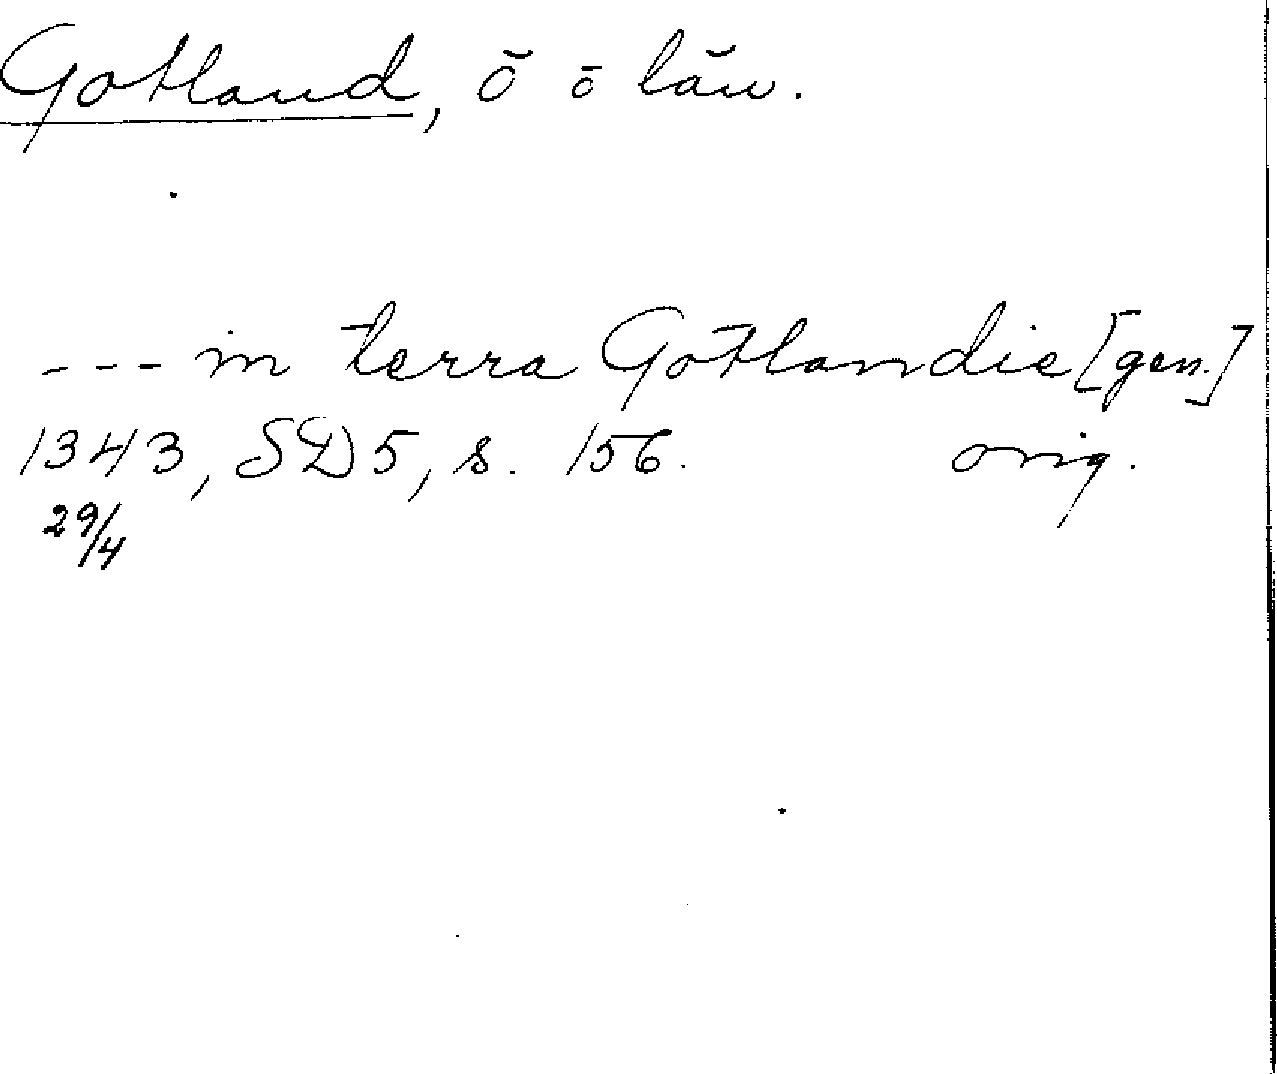 Gotland, ö o län.
--- in terra Gotlandie [gen.]
1343, SD 5, s. 156. orig.
29/4